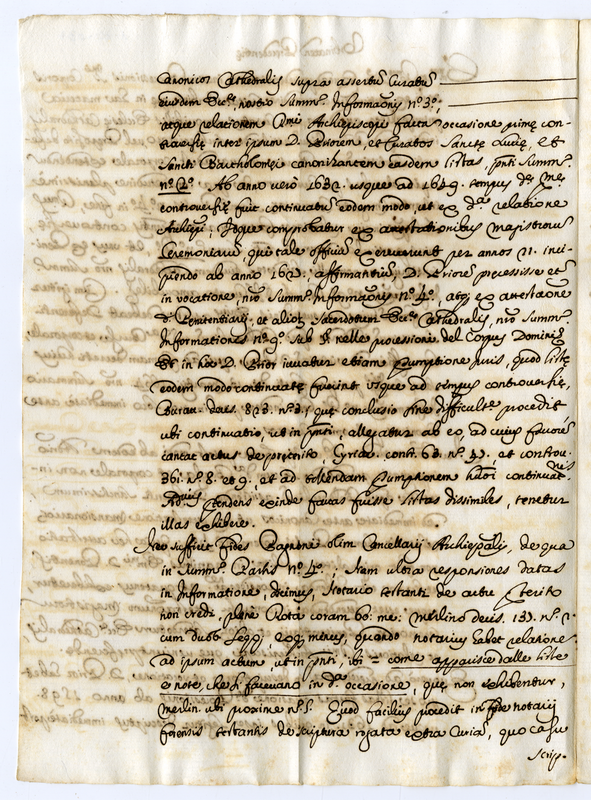 Canonicos Cathedralis supra assertus Curatus
eiusdem Ecc.ę, nostro Summ.o Informaōnis n.o 3.o,
atque relationem Archiepiscopi facta occasione primę con-
trauersię inter ipsum D. Priorem, et Curatos Sanctę Lucię, et
Sancti Bartholomęi canonizantem easdem listas, pn̄ti Summ.o
n.o 2.o. Ab anno verò 1632. usque ad 1649. tempus d.ę
controuersię fuit continuatus eodem modo, ut ex d.a relatione
Archiepi; Idque comprobatur ex attestationibus Magistrorum
Ceremoniarum, qui tale officium exercuerunt per annos 21. inci-
piendo ab anno 1623; affirmantium, D. Priorem pręcessisse etc
in vocatione, nr̄o Summ.o Informaōnis n.o 4.o, atque ex attestaōne
D. Penitentiarij, et aliorum Sacerdotum Ecc.ę Cathedralis, nr̄o Summ.o
Informationis n.o 9.o sub nelle processioni del Corpus Domini
Et in hoc D. Prior iuuatur etiam pręsumptione iuris, quod listę
eodem modo continuatę fuerint usque ad tempus controuersię,
Burat. decis. 823. n.3., quę conclusio sine difficultate procedit
ubi continuatio, ut in pn̄ti, allegatur ab eo, ad cuius fauorem
cantat actus de pręterito, Cyriac. contr. 63. n.o 47. et controu.
361. n.o 8. et 9. et ad tollendam pręsumptionem continuat.nis
Aduersus prętendens exinde factas fuisse listas dissimiles, tenetur
illas exhibere.
Nec sufficit fides Bagnoni olim Cancellarij Archiepalis, de qua
in Summ.o Partis n.o 4.o; Nam ultra responsiones datas
in Informatione, dicimus, Notario testanti de actu pręterito
non credi, plenè Rota coram bo: me: Merlino decis. 137. n.o
cum duob. seqq., eoque minus, quando notarius habet relationem
ad ipsum actum, ut in pn̄ti, ibi = come apparisce dalle liste
e note, che si faceuano in d.a occasione, quę non exhibentur,
Merlin. ubi proxime n.o 5. Quod facilius procedit in fide notarij
forensis testantis de scriptura rogata extra Curiam, quo casu
scrip-